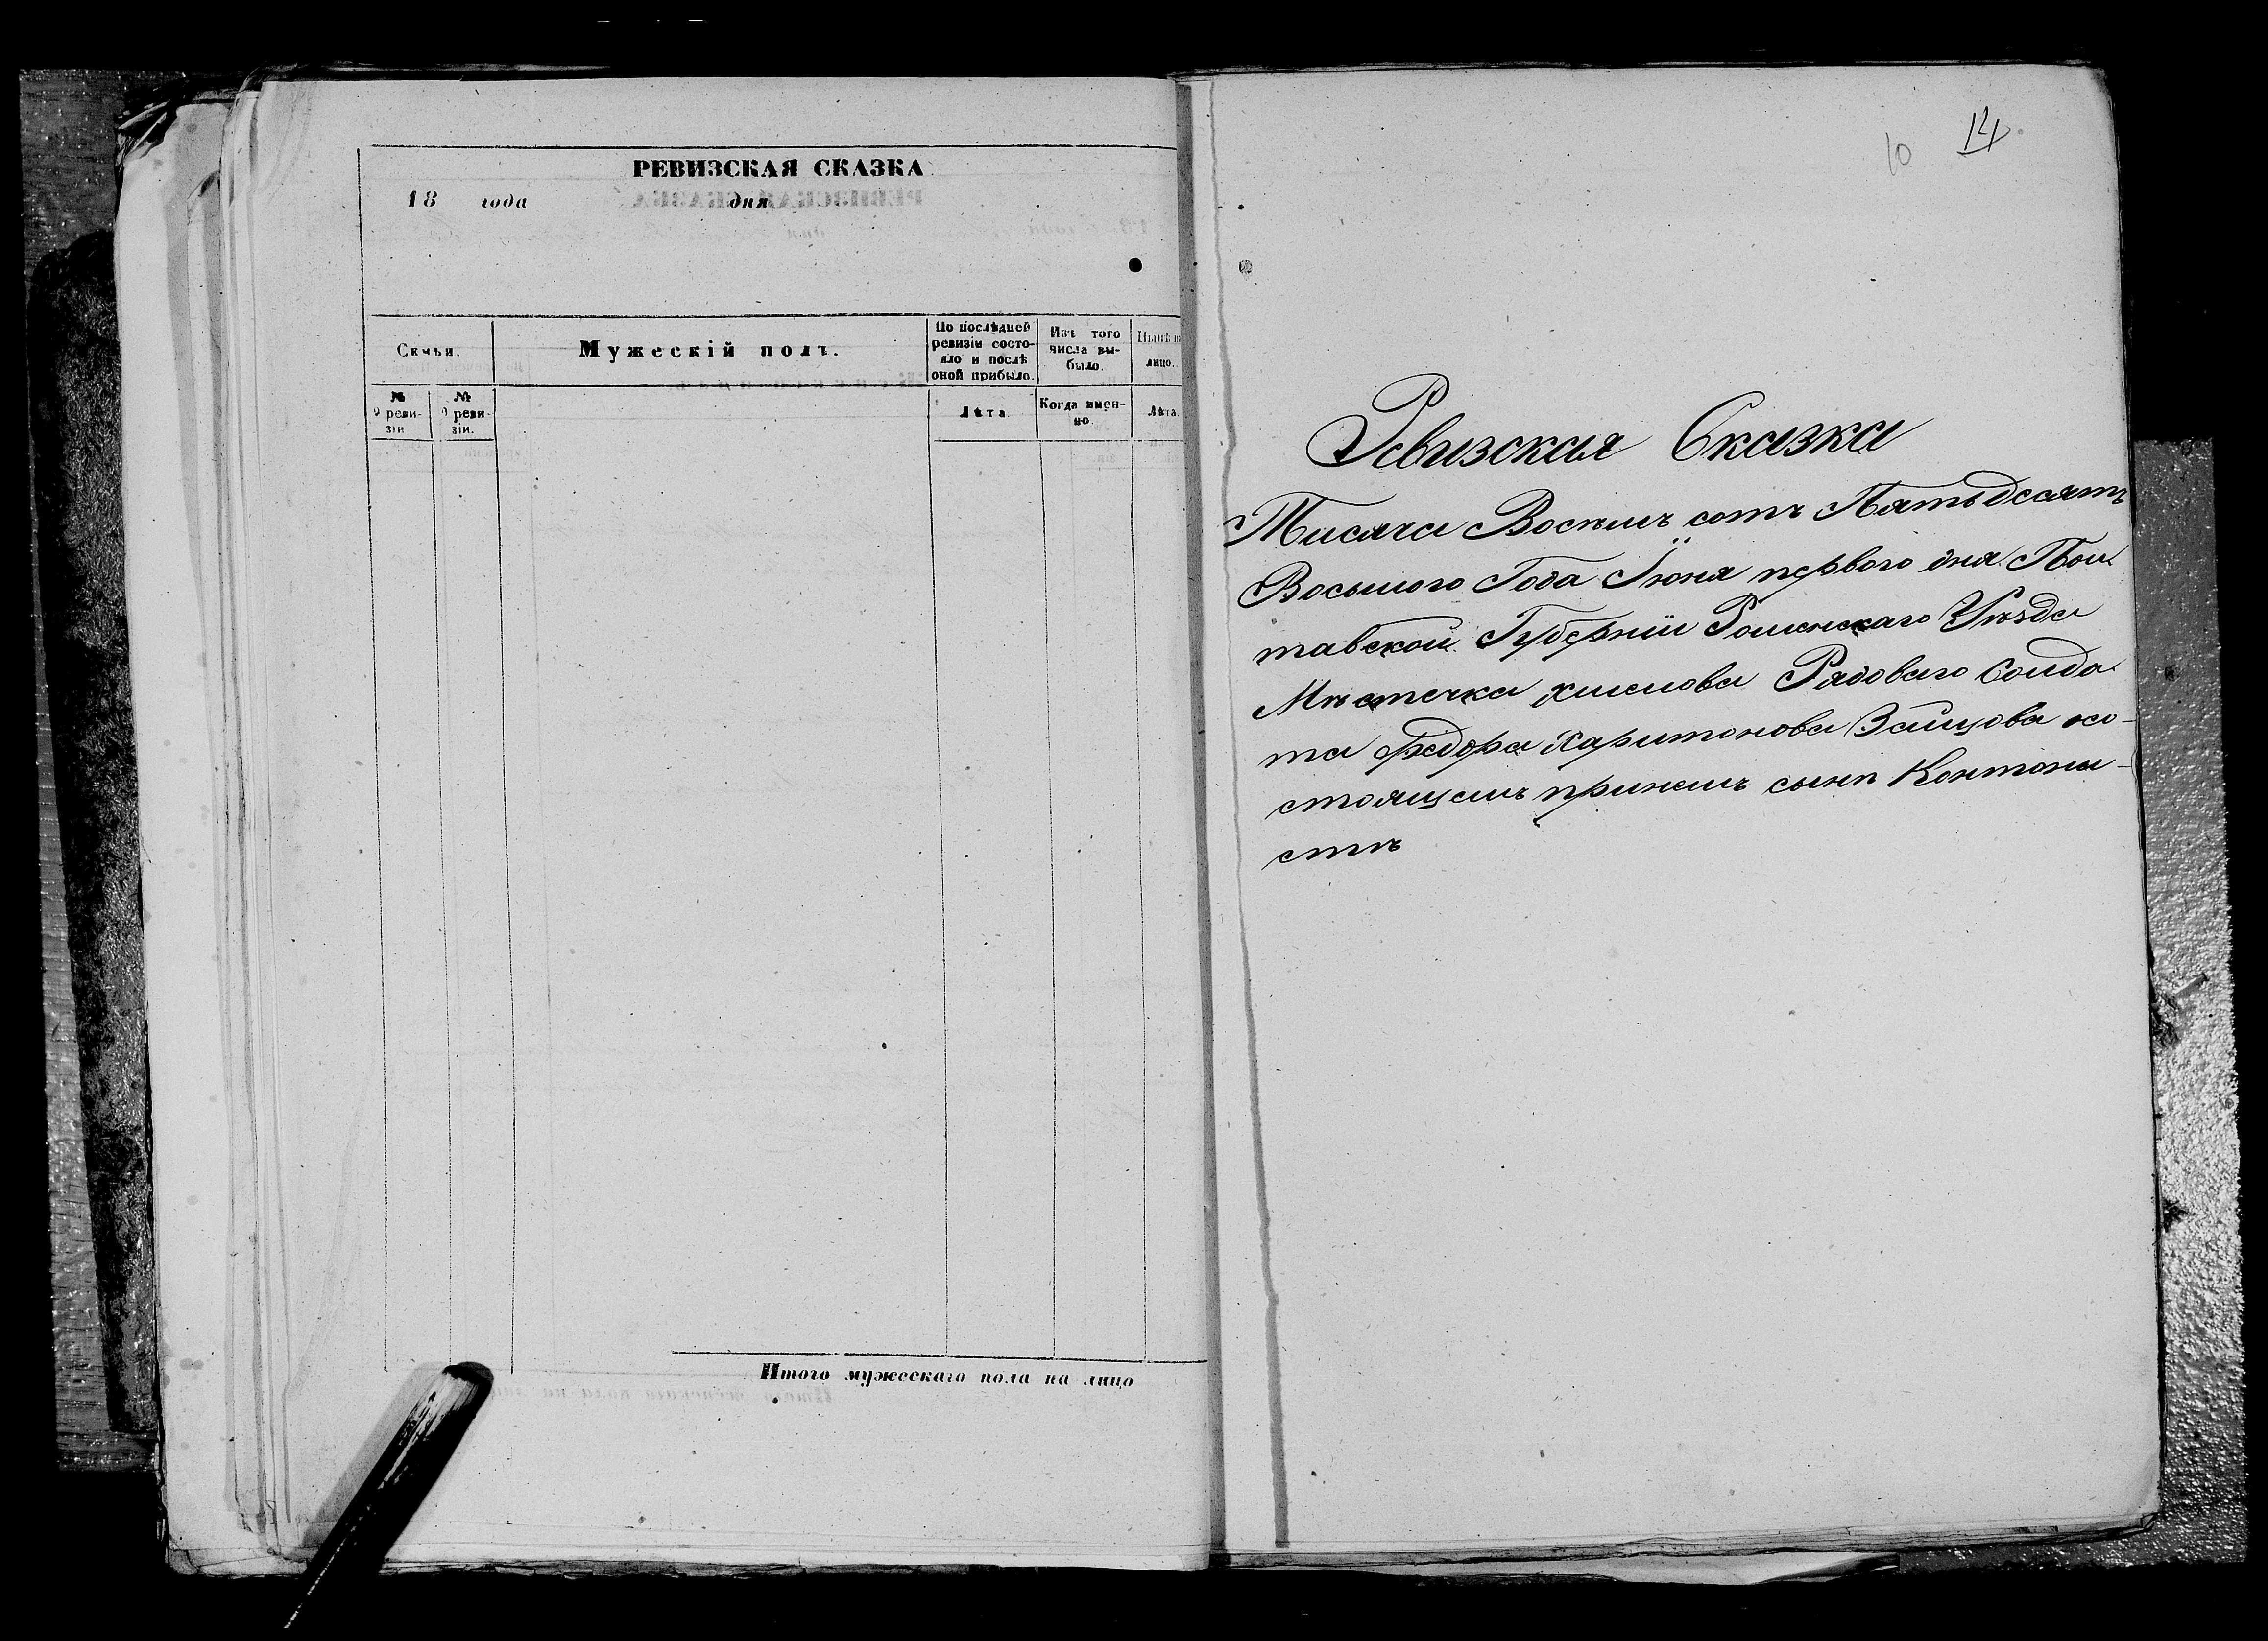 РЕВИЗСКАЯ СКАЗКА
18 года дня
Семьи.
Мужескій полъ.
По послѣдней ревизіи состояло и послѣ оной прибыло.
Изъ того числа выбыло.
Нынѣ на лицо.
№ 9 ревизіи
№ 9 ревизіи.
Лѣта.
Когда именно.
Лѣта
Итого мужескаго пола на лицо
10 14
Ревизская Сказка
Тисяча Восѣмъ сотъ Пятьдесятъ
Восьмого Года Іюня первого дня Пол
тавской Губерніи Роменскаго Уѣзда
Мѣстечка хмелова Рядоваго Солда
та Федора Харитонова Зайцова о со-
стоящемъ принемъ сынѣ Контони-
стѣ